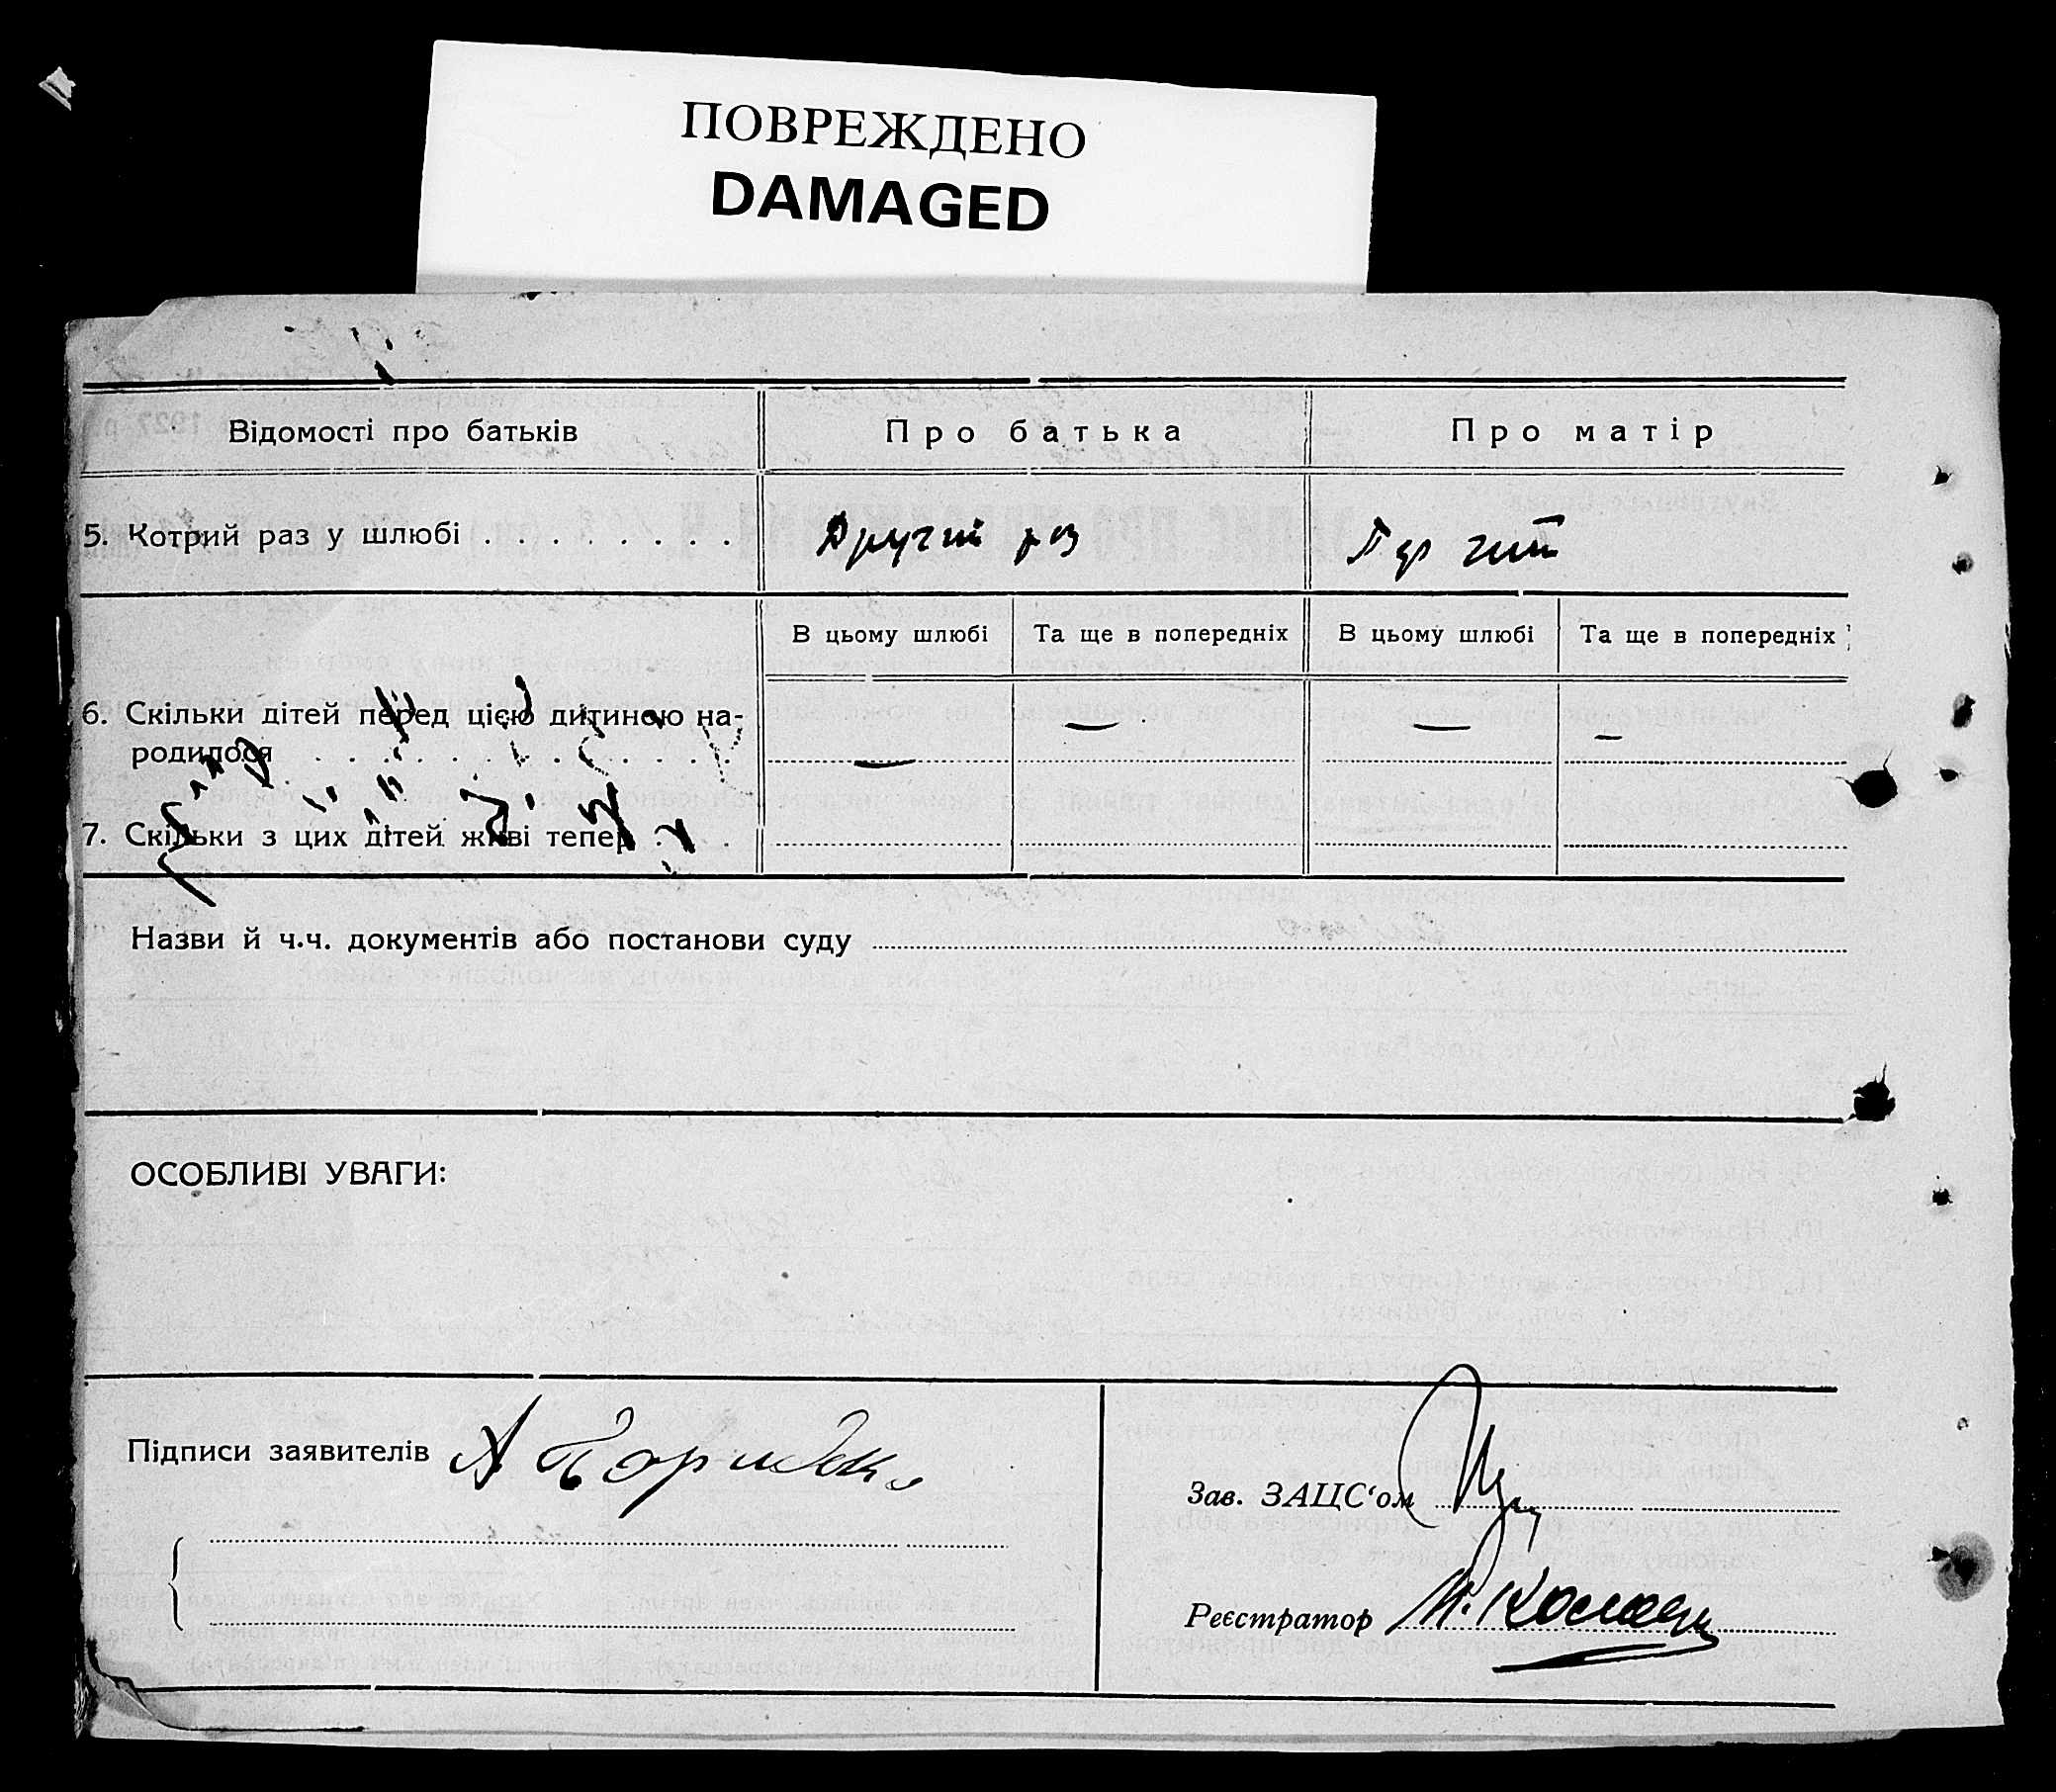 ПОВРЕЖДЕНО
DAMAGED
Відомості про батьків
Про батька
Про матір
5. Котрий раз у шлюбі . . . . . . . .
Другий раз
В цьому шлюбі
Та ще в попередніх
В цьому шлюбі
Та ще в попередніх
6. Скільки дітей перед цією дитиною на-
родилося
7. Скільки з цих дітей живі тепер
Назви й ч.ч. документів або постанови суду
ОСОБЛИВІ УВАГИ:
Підписи заявителів А
Зав. ЗАЦС‘ом
Реєстратор М.